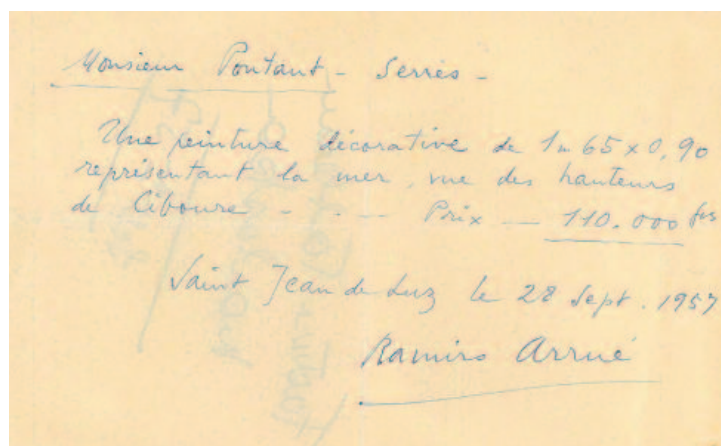 Monsieur Pontaut - Serres -
Une peinture décorative de 1m 65 x 0,90
représentant la mer, vue des hauteurs
de Ciboure - - - Prix — 110.000 frs
Saint Jean de Luz le 28 Sept. 1957
Ramiro Arrué